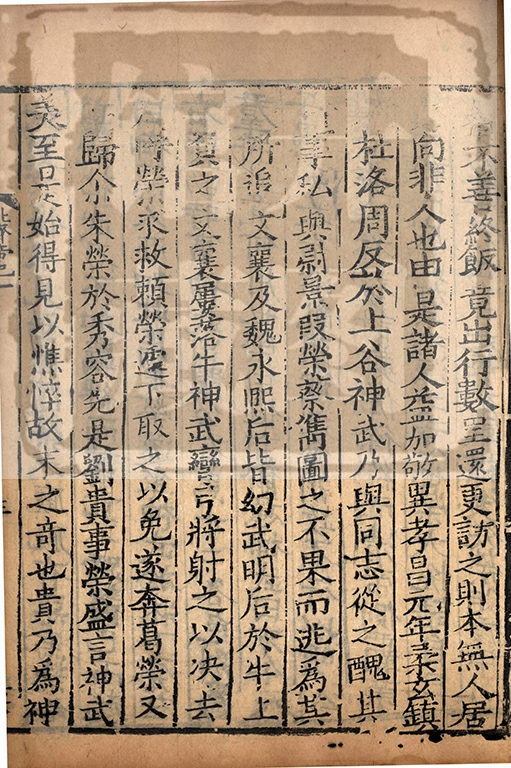 不善終飯竟出行數里還更訪之則本無人居
向非人也由是諸人益加敬異孝昌元年柔玄鎮
杜洛周反於上谷神武乃與同志從之醜其
事私與尉景段榮蔡儁圖之不果而逃為其
所追文襄及魏永熙后皆幼武明后於牛上
負之文襄屢落牛神武彎弓將射之以决去
后呼榮求救賴榮遽下取之以免遂奔葛榮又
歸尒朱榮於秀容先是劉貴事榮盛言神武
美至是始得見以憔悴故未之竒也貴乃為神